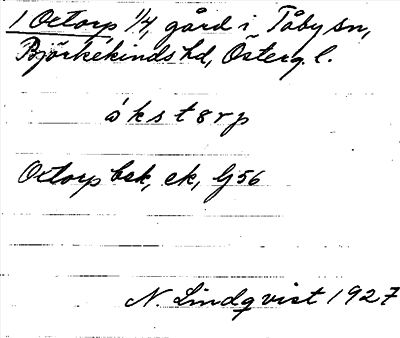 1 Octorp 1/4, gård i Tåby sn,
Björkekinds hd, Österg. l.
ó k s t 8 r p
Octorp bsk, ek, G 56
N. Lindqvist 1927